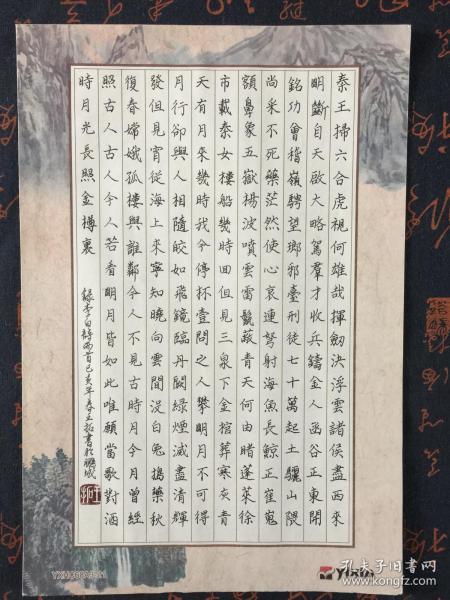 秦王掃六合虎視何雄哉揮劍決浮雲諸侯盡西來
明斷自天啟大略駕羣才收兵鑄金人函谷正東開
銘功會稽嶺騁望瑯邪臺刑徒七十萬起土驪山隈
尚采不死藥茫然使心哀連弩射海魚長鯨正崔嵬
額鼻象五嶽楊波噴雲雷鬣蔽青天何由睹蓬萊徐
市載秦女樓船幾時回但見三泉下金棺葬寒灰青
天有月來幾時我今停杯壹問之人攀明月不可得
月行卻與人相隨皎如飛鏡臨丹闕綠煙滅盡清輝
發但見宵從海上來寧知曉向雲間沒白兔搗藥秋
復春嫦娥孤棲與誰鄰今人不見古時月今月曾經
照古人古人今人若看明月皆如此唯願當歌對酒
時月光長照金樽裏
錄李白詩兩首己亥年春王拓書於鵬城
孔夫子旧书网